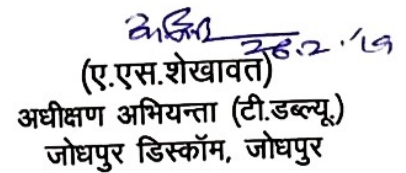 28.2.'19
(ए.एस.शेखावत)
अधीक्षण अभियन्ता (टी.डब्ल्यू.)
जोधपुर डिस्कॉम, जोधपुर